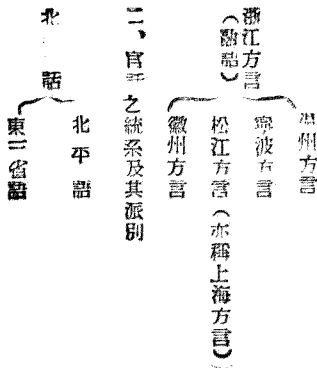 浙江方言
溫州方言
寧波方言
松江方言(亦稱上海方言)
徽州方言
二、官話之統系及其派別
北 話
北平語
東三省語